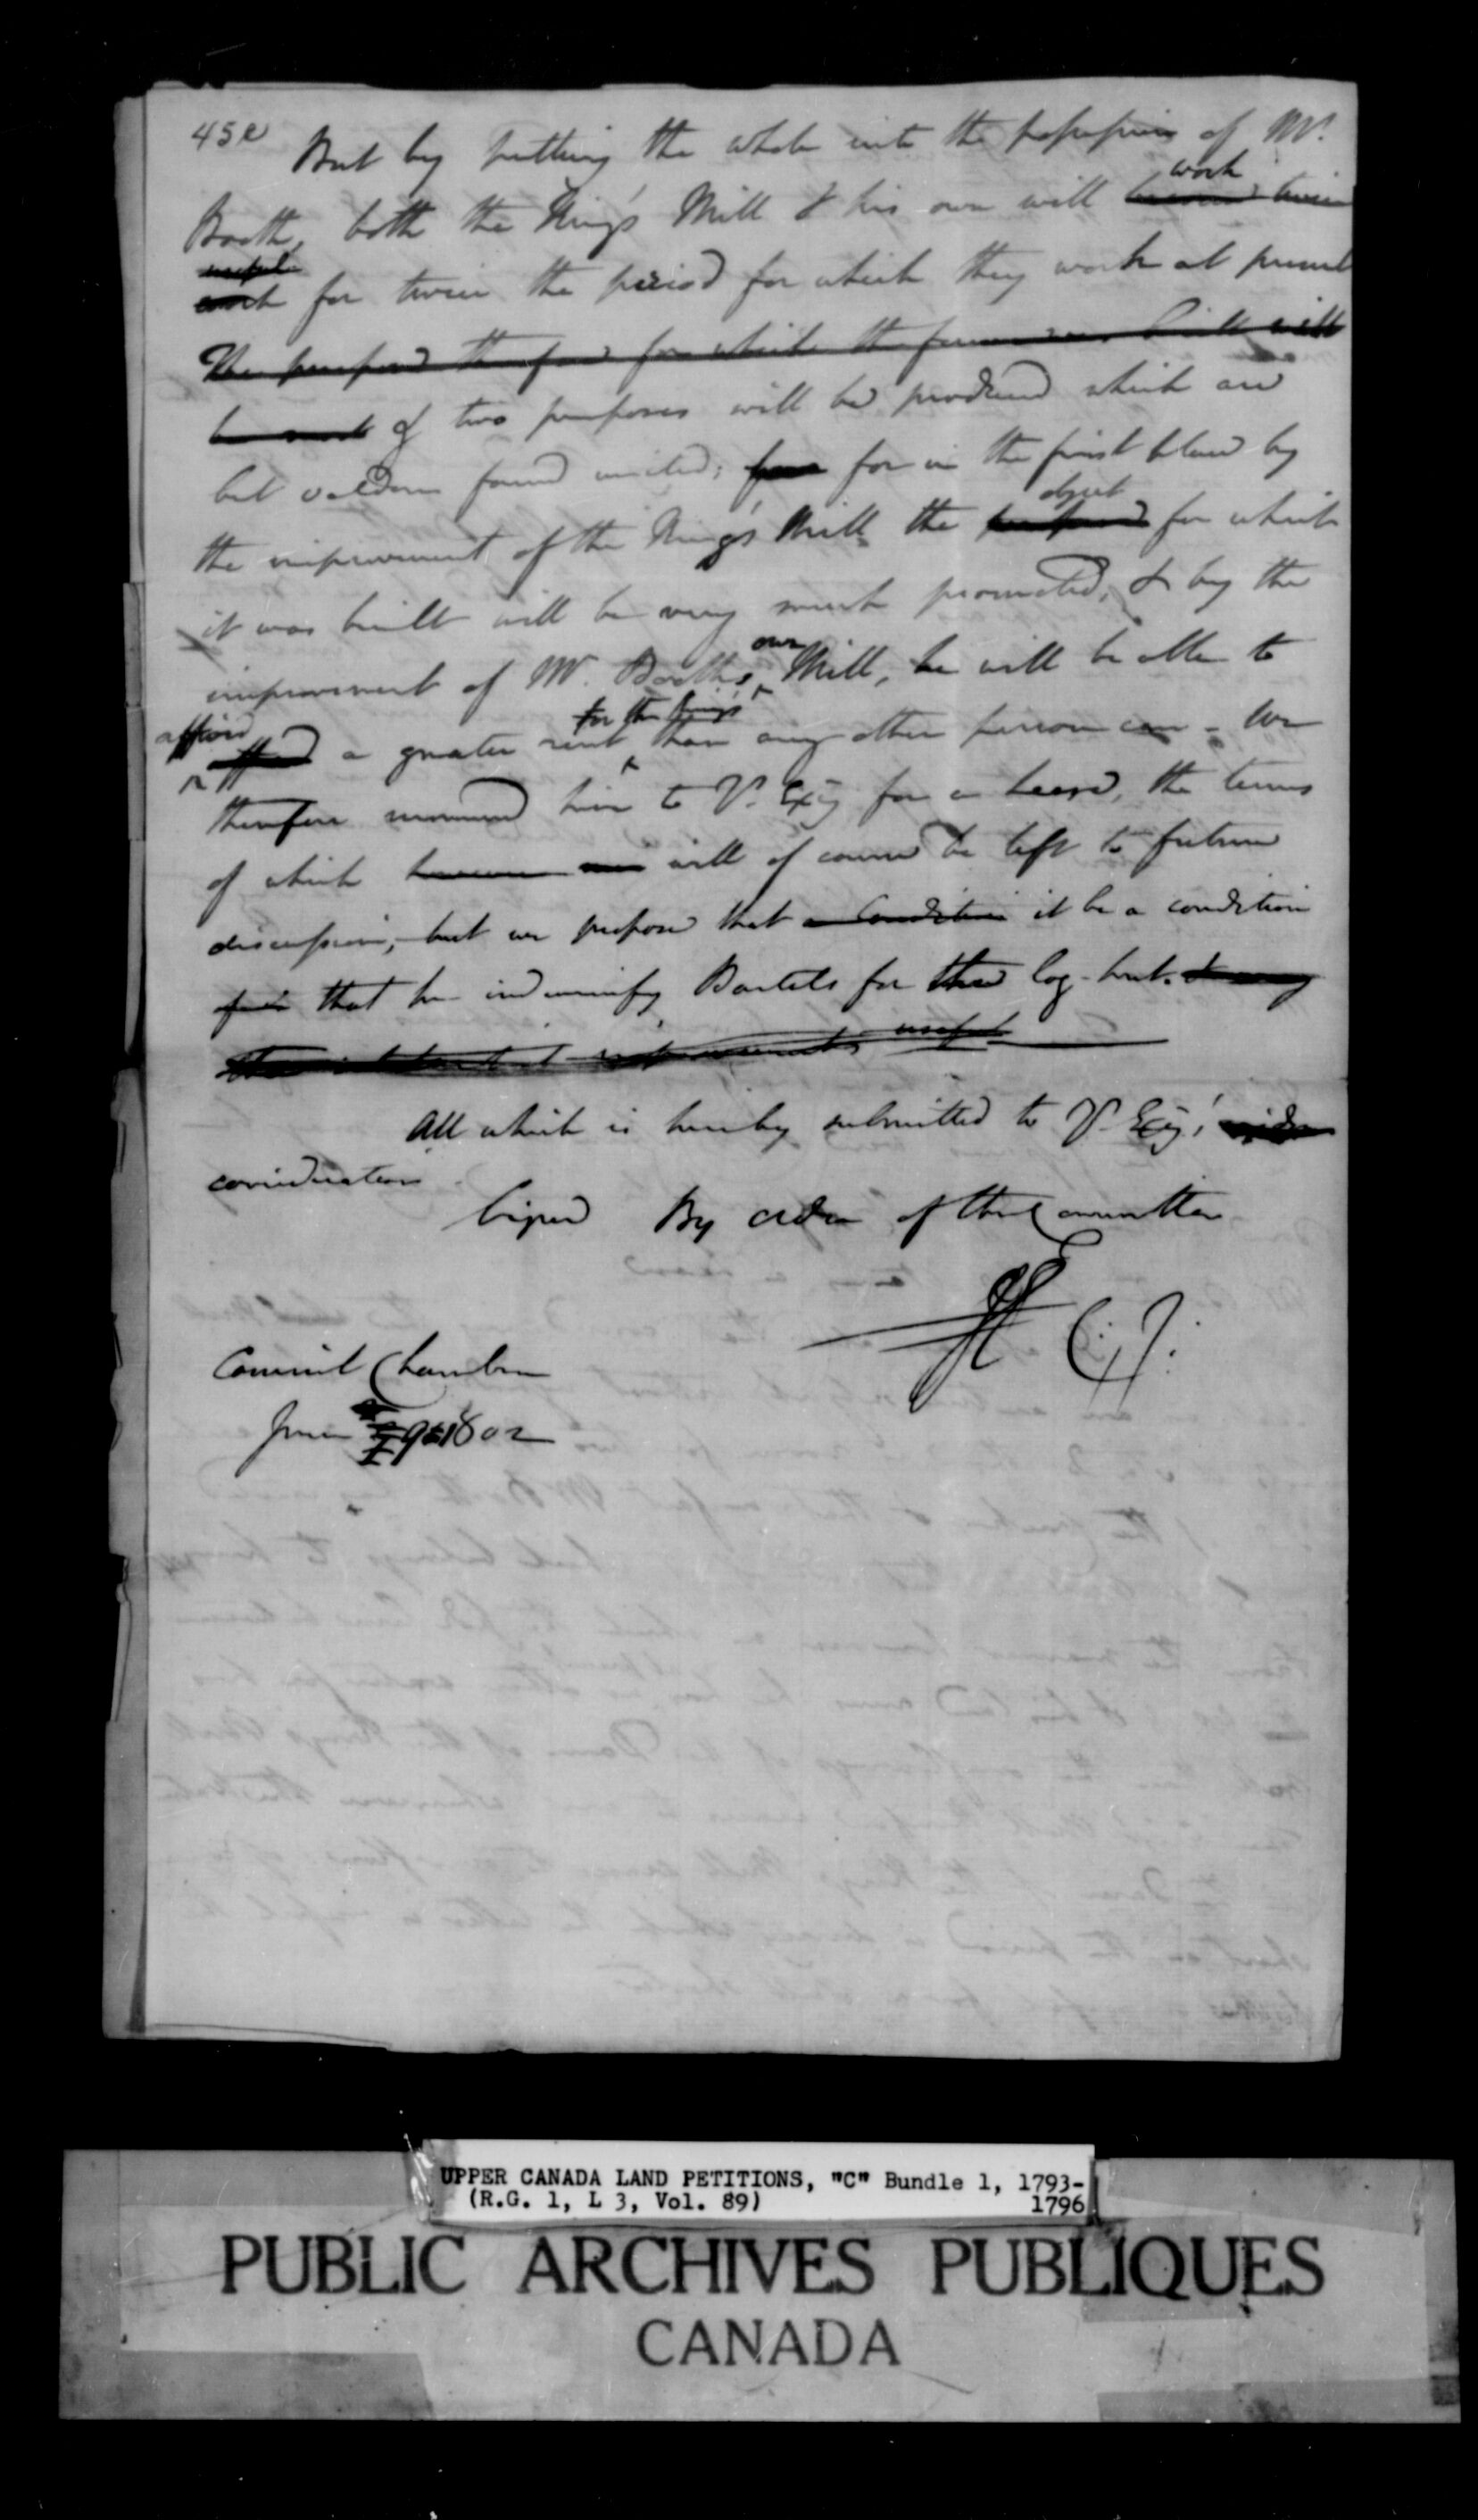 45e
But by putting the whole into the possession of Mr.
work
Booth, both the King's Mill & his own will
useful
work for twice the period for which they work at present
The purpose the for which the will
of two purposes will be produced which are
but seldom found united; for in the first place by
object
the improvement of the King's Mill the purpose for which
it was built will be very much promoted, & by the
own
improvement of Mr. Booth's Mill, he will be able to
afford for the King's
a greater rent than any other person can - We
therefore recommend him to Y. Excy for a Lease, the terms
of which will of course be left to future
discussion, but we propose that a Condition it be a condition
that he indemnify Bartels for the log-hut
useful
All which is hereby submitted to Y. Excy's
consideration
Signed By order of the Committee
C. J.
Council Chamber
June 1802
UPPER CANADA LAND PETITIONS, "C" Bundle 1, 1793-
(R.G. 1, L 3, Vol. 89) 1796
PUBLIC ARCHIVES PUBLIQUES
CANADA